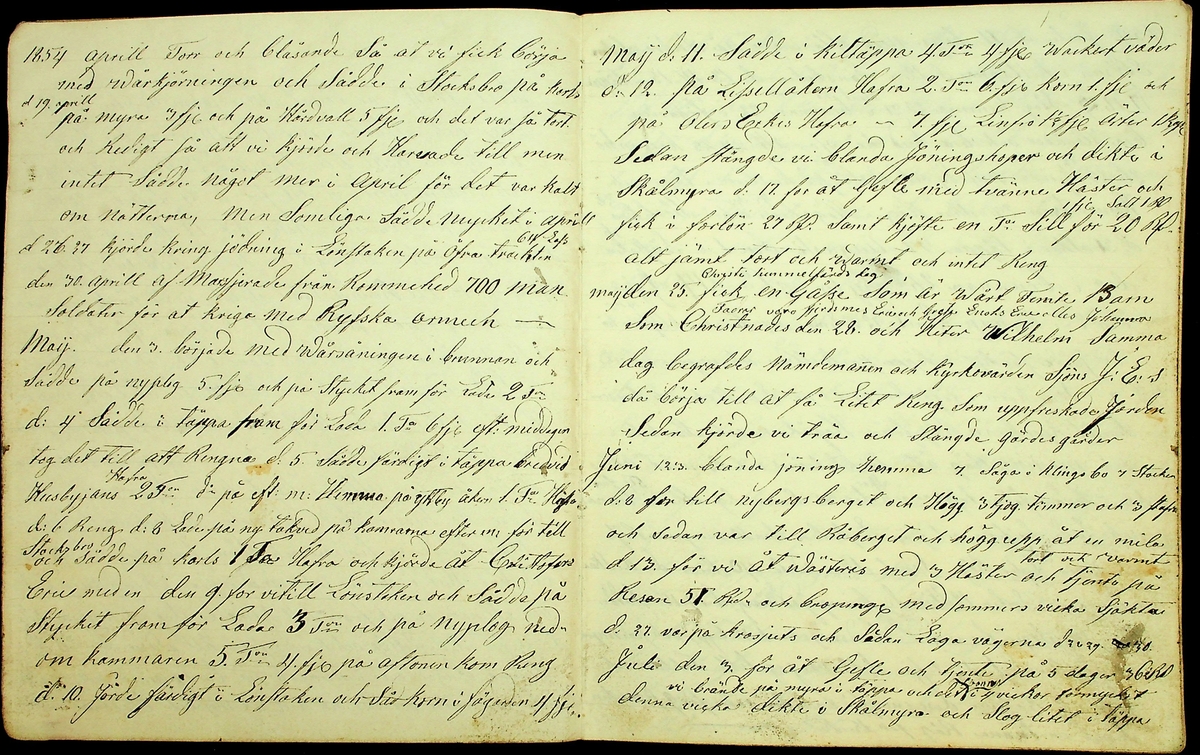 1854 aprill Torr och blåsande Så at vi fick börja
med Wårkjörningen och Sådde i Stocksbro på Karls
d 19 aprill
på myra 3 fje och på Hårdvall 5 fje och det var så tort
och Redigt så att vi kjörde och Harvade till men
intet Sådde något mer i April för det var kalt
om nätterna, Men Somliga Sådde mycket i aprill
d 26 27 kjörde kring jödning i Lönstaken på öfra trackten
den 30 aprill af Marsjerade från Rommehed 700 man
Soldater för at kriga med Rysska armeen —
Maij. den 3. började med Wårsåningen i brunnan och
Sådde på nyplog 5 fje och på Stycket fram för Lada 2 Tnr
d: 4 Sådde i täppa fram för Lada 1. Ta 6 fje eft: middagen
tog det till att Rengna d. 5. Sådde färdigt i täppa bredvid
Hafra
Husbyjans 2 Tnr do på eft: m: Hemma på åkern 1. Ta Hafra
d: 6 Reng d: 8 Lade på ny takved på kamrarna efter m for till
Stocksbro
och Sådde på Karls 1 Ta Hafra och kjörde åt Christofers
Eric neden den 9 for vi till Lönstaken och Sådde på
Stycket fram för Lada 3 Tnr och på nyplog ned-
om kammaren 5. Tnr 4 fje på aftonen kom Reng
d: 10. Jorde färdigt i Lönstaken och Korn i 4 fje
Maij d: 11. Sådde i Kiltäppa 4. Tnr 4 fje Wackert väder
d: 12. på Lissellåkern Hafra 2. Tnr 6. fje Korn 1. fje och
på Olers Erkes Hafra — 7. fje Linfrö ½ fje Ärter
Sedan stängde vi blanda Jöningshoper och dikte i
Skålmyra d: 17 for åt Gefle med tvänne Häster och
fick i forlön 27 Rd. Samt kjöfte en Ta Sill för 20 Rd.
alt jämt tort och Warmt och intet Reng
Christi himmelsfärds dag
maij den 25. fick en Gåsse Som är Wårt Femte Barn
Som Christnades den 28. och Heter Wilhelm Samma
dag begrafdes Nämdemannen och Kyrkovärden Sjöns J: E: s
då börja till at få Litet Reng Som uppfreskade Jorden
Sedan kjörde vi träa och Stängde gärdesgårder
Juni 1 2 3. blanda jöning hemma 7 Såga i Klingsbo 7 Stockar
d: 8 for till nybergsberget och Högg 3 tjog timmer och 3
och Sedan var till Råberget och högg upp åt en mila
tort och varmt
d 13. for vi åt Wästerås med 3 Häster och tjente på
Resan 51. Rd. och med sommers vicka
d. 27. var på krosjuts och Sedan Laga vägerna d 28 29. 30.
Juli den 3. for åt Gefle och tjente på 5 dagar 36 Rd
vi brände på myra i täppa och
denna vicka dikte i Skålmyra och Slog litet i täppa